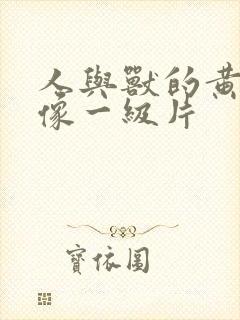 人與獸的黃
像一級片
寶依圖